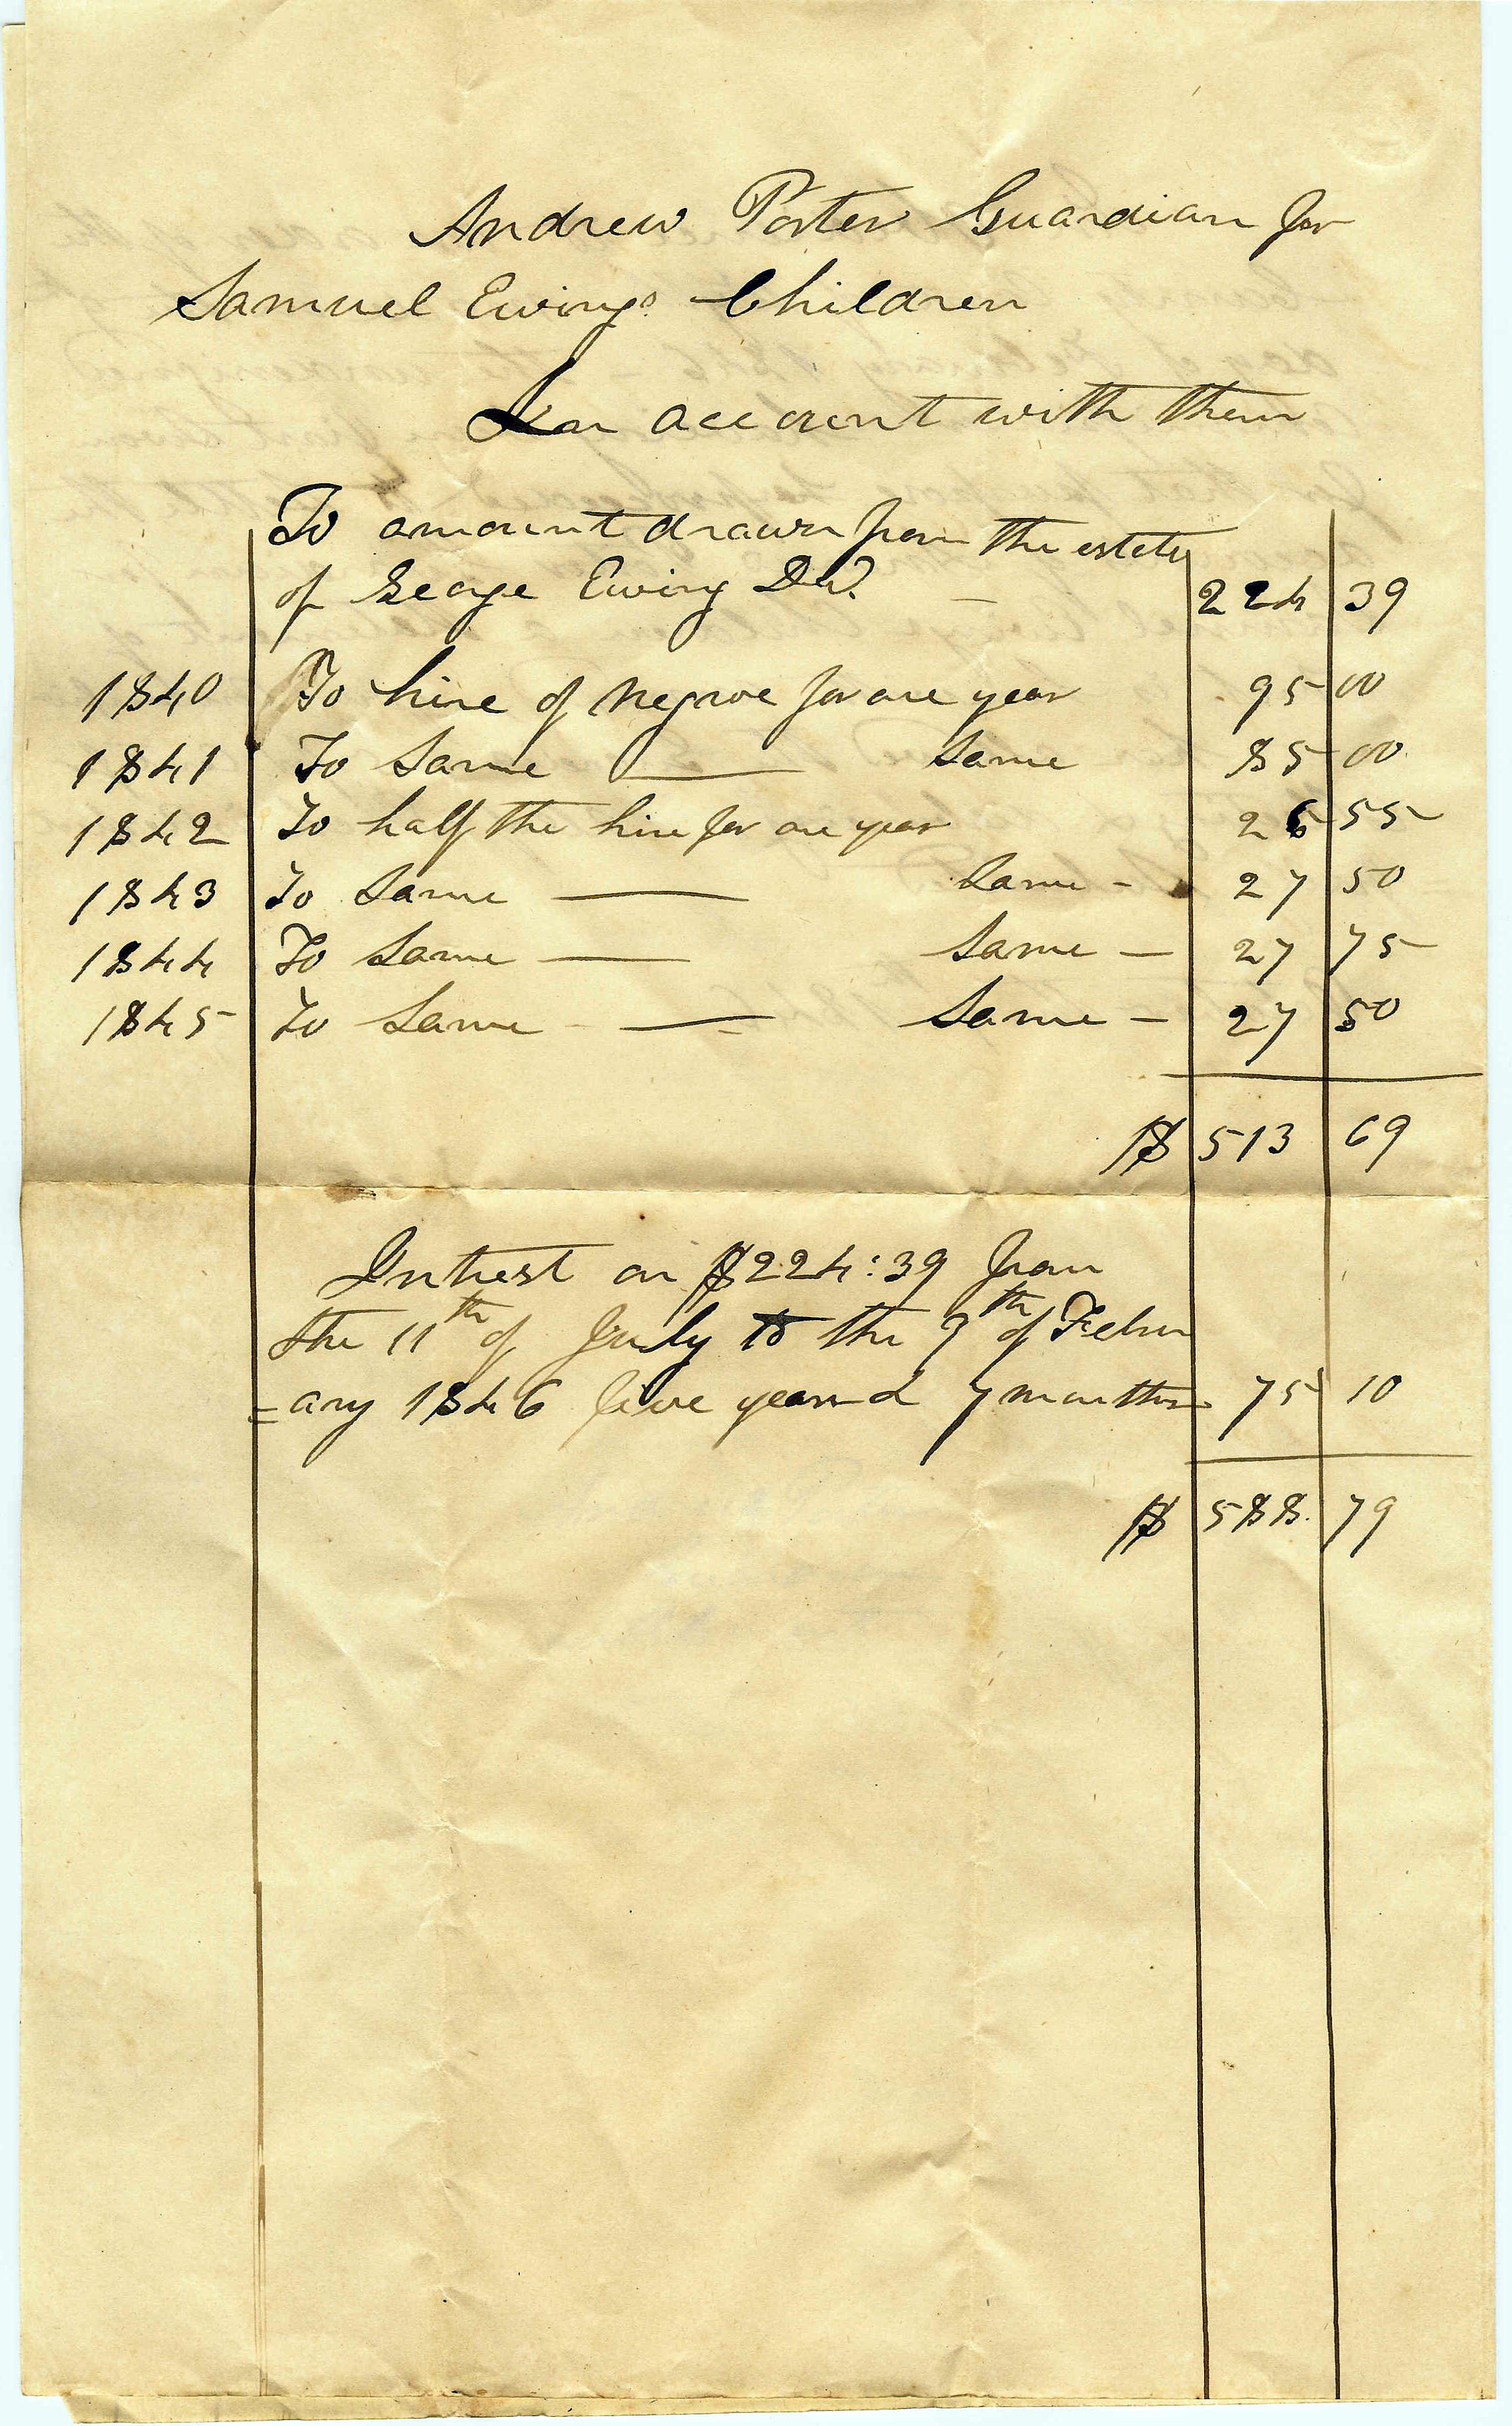 Andrew Porter Guardian for
Samuel Ewings Children
In account with them
To amount drawn from the estate
of George Ewing Dcd. — 224 39
1840 To hire of Negroe for one year 95 00
1841 To Same — Same 85 00
1842 To half the hire for one year 26 55
1843 To Same — Same - 27 50
1844 To Same — Same — 27 75
1845 To Same — Same — 27 50
$ 513 69
Intrest on $224:39 from
the 11th of July to the 9th of Febru
=ary 1846 five years & 7 months 75 10
$ 588. 79